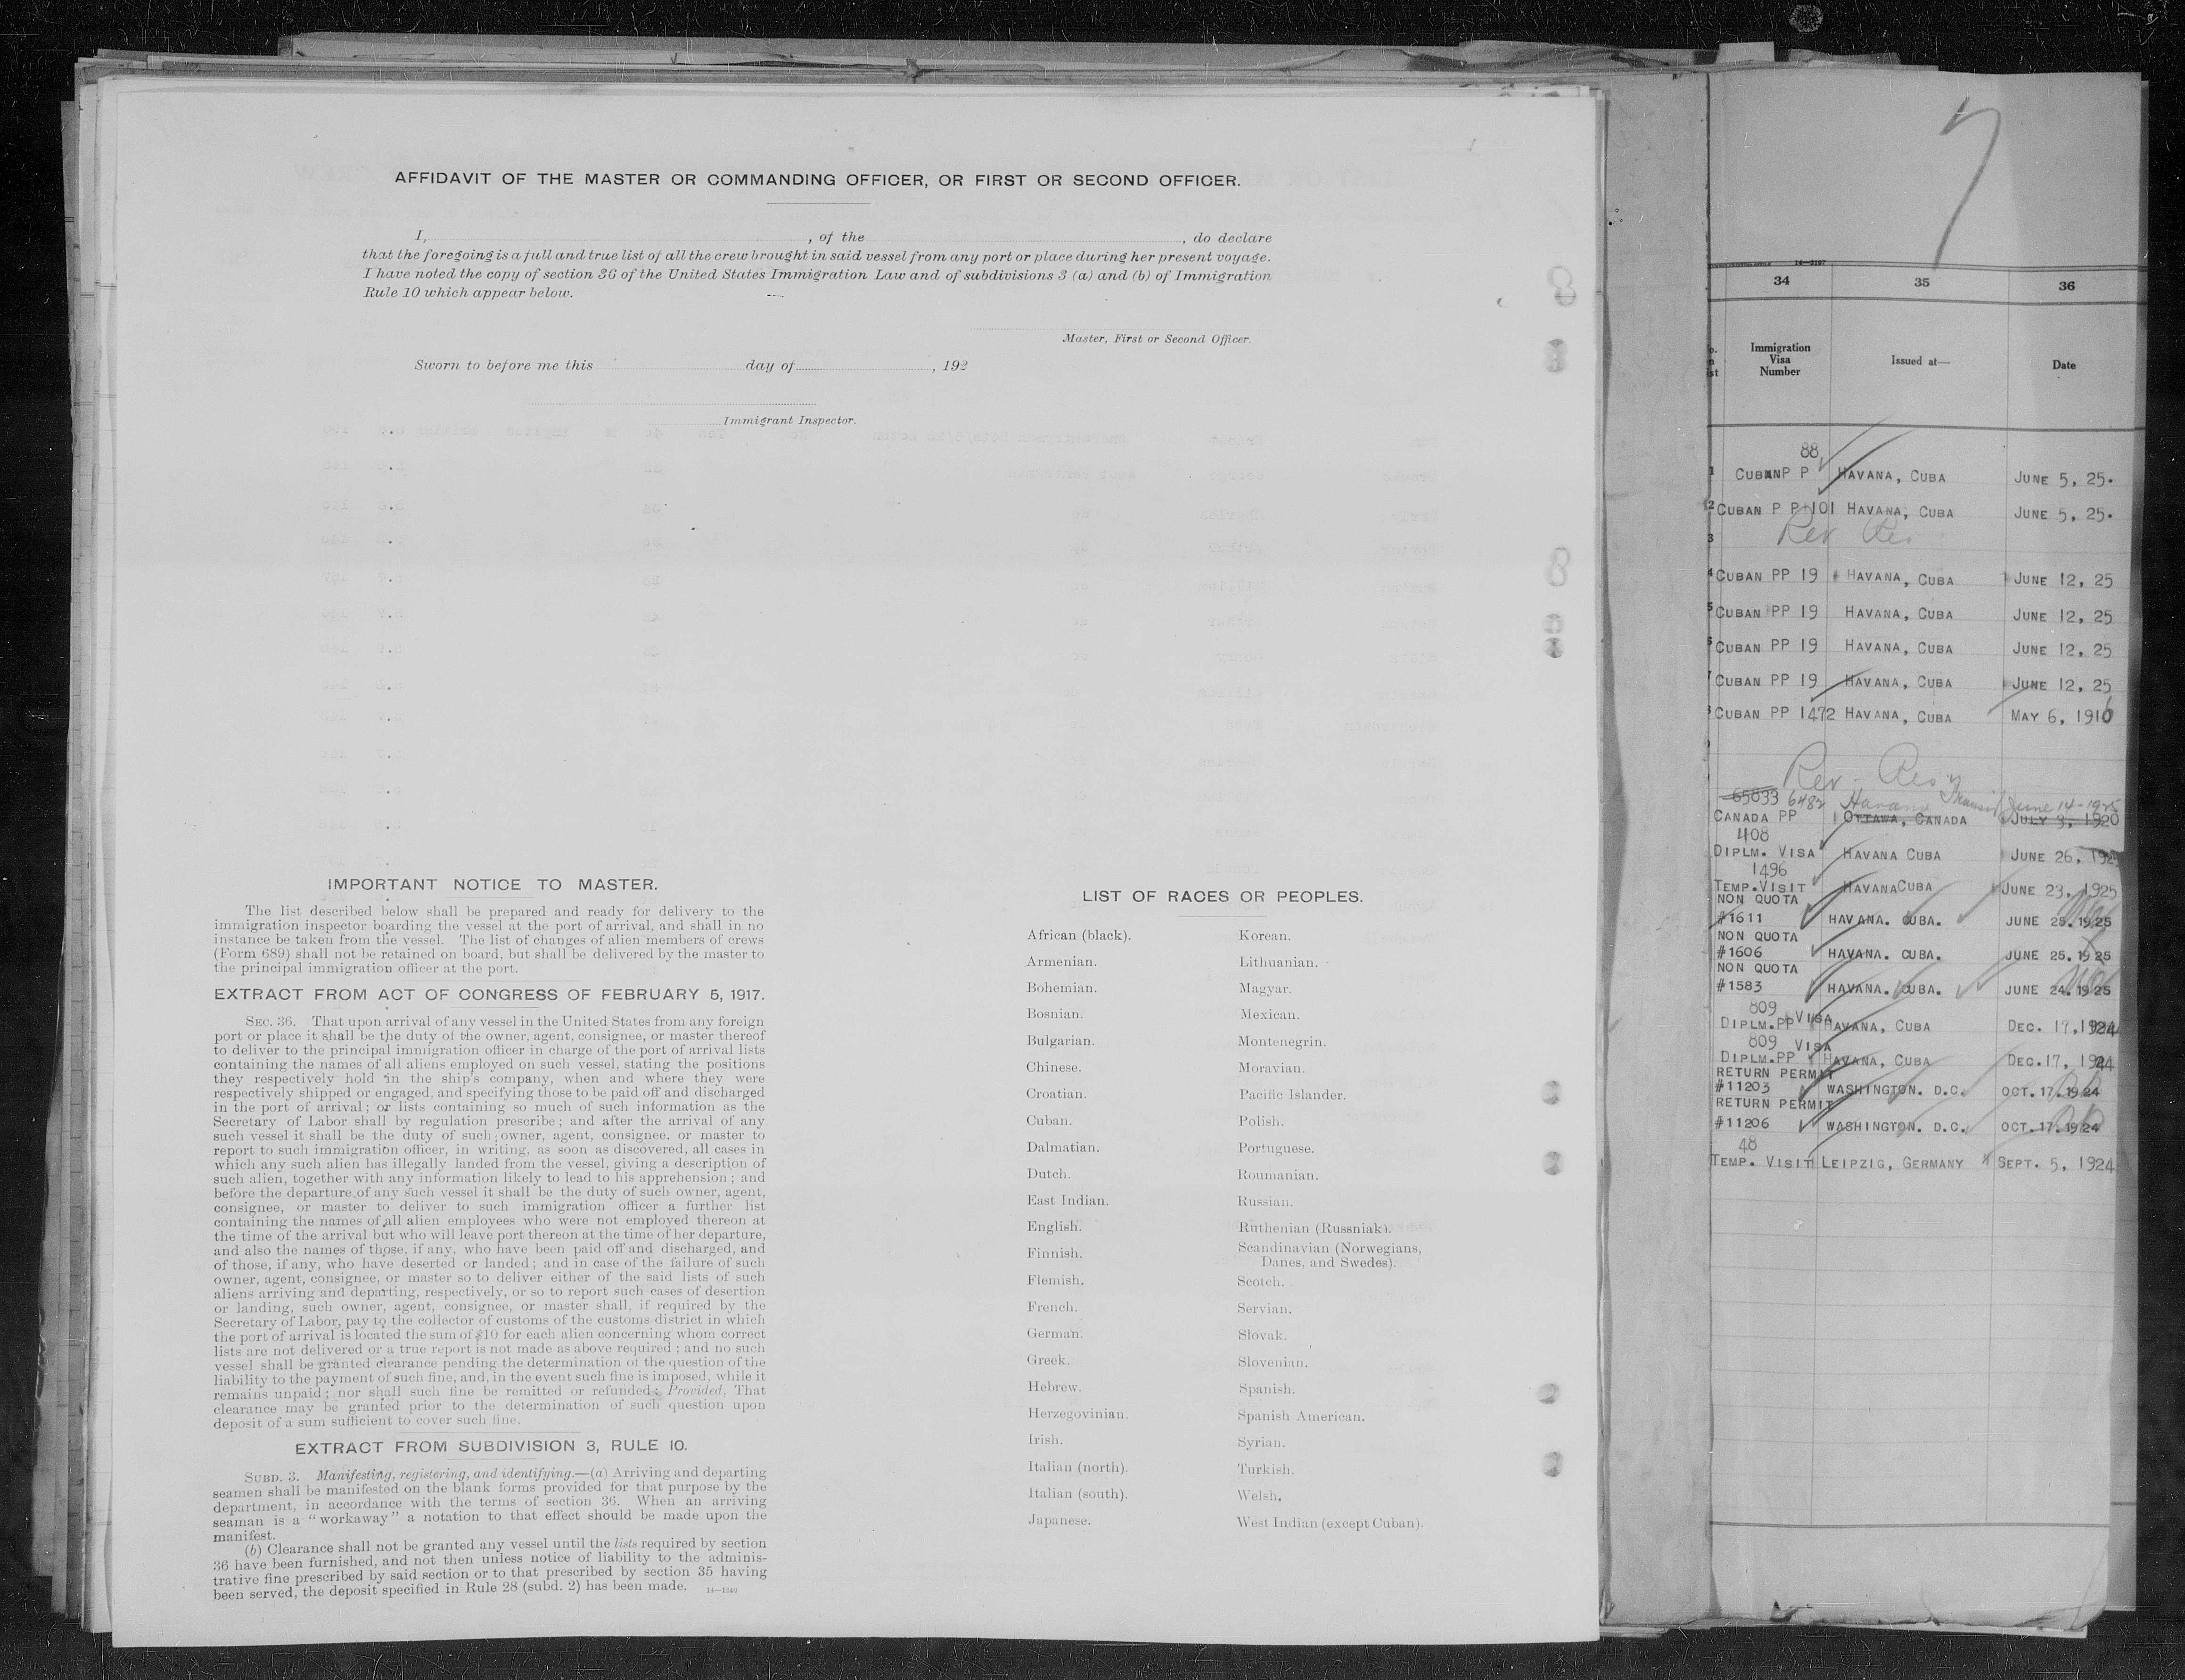 AFFIDAVIT OF THE MASTER OR COMMANDING OFFICER, OR FIRST OR SECOND OFFICER.
I, , of the , do declare
that the foregoing is a full and true list of all the crew brought in said vessel from any port or place during her present voyage.
I have noted the copy of section 36 of the United States Immigration Law and of subdivisions 3 (a) and (b) of Immigration
Rule 10 which appear below.
Master, First or Second Officer.
Sworn to before me this day of , 192
Immigrant Inspector.
IMPORTANT NOTICE TO MASTER.
The list described below shall be prepared and ready for delivery to the
immigration inspector boarding the vessel at the port of arrival, and shall in no
instance be taken from the vessel. The list of changes of alien members of crews
(Form 689) shall not be retained on board, but shall be delivered by the master to
the principal immigration officer at the port.
EXTRACT FROM ACT OF CONGRESS OF FEBRUARY 5, 1917.
SEC. 36. That upon arrival of any vessel in the United States from any foreign
port or place it shall be the duty of the owner, agent, consignee, or master thereof
to deliver to the principal immigration officer in charge of the port of arrival lists
containing the names of all aliens employed on such vessel, stating the positions
they respectively hold in the ship's company, when and where they were
respectively shipped or engaged, and specifying those to be paid off and discharged
in the port of arrival; or lists containing so much of such information as the
Secretary of Labor shall by regulation prescribe; and after the arrival of any
such vessel it shall be the duty of such owner, agent, consignee, or master to
report to such immigration officer, in writing, as soon as discovered, all cases in
which any such alien has illegally landed from the vessel, giving a description of
such alien, together with any information likely to lead to his apprehension; and
before the departure of any such vessel it shall be the duty of such owner, agent,
consignee, or master to deliver to such immigration officer a further list
containing the names of all alien employees who were not employed thereon at
the time of the arrival but who will leave port thereon at the time of her departure,
and also the names of those, if any, who have been paid off and discharged, and
of those, if any, who have deserted or landed; and in case of the failure of such
owner, agent, consignee, or master so to deliver either of the said lists of such
aliens arriving and departing, respectively, or so to report such cases of desertion
or landing, such owner, agent, consignee, or master shall, if required by the
Secretary of Labor, pay to the collector of customs of the customs district in which
the port of arrival is located the sum of $10 for each alien concerning whom correct
lists are not delivered or a true report is not made as above required; and no such
vessel shall be granted clearance pending the determination of the question of the
liability to the payment of such fine, and, in the event such fine is imposed, while it
remains unpaid; nor shall such fine be remitted or refunded: Provided, That
clearance may be granted prior to the determination of such question upon
deposit of a sum sufficient to cover such fine.
EXTRACT FROM SUBDIVISION 3, RULE 10.
SUBD. 3. Manifesting, registering, and identifying.—(a) Arriving and departing
seamen shall be manifested on the blank forms provided for that purpose by the
department, in accordance with the terms of section 36. When an arriving
seaman is a "workaway" a notation to that effect should be made upon the
manifest.
(b) Clearance shall not be granted any vessel until the lists required by section
36 have been furnished, and not then unless notice of liability to the adminis-
trative fine prescribed by said section or to that prescribed by section 35 having
been served, the deposit specified in Rule 28 (subd. 2) has been made. 14—1240
LIST OF RACES OR PEOPLES.
African (black).
Armenian.
Bohemian.
Bosnian.
Bulgarian.
Chinese.
Croatian.
Cuban.
Dalmatian.
Dutch.
East Indian.
English.
Finnish.
Flemish.
French.
German.
Greek.
Hebrew.
Herzegovinian.
Irish.
Italian (north).
Italian (south).
Japanese.
Korean.
Lithuanian.
Magyar.
Mexican.
Montenegrin.
Moravian.
Pacific Islander.
Polish.
Portuguese.
Roumanian.
Russian.
Ruthenian (Russniak).
Scandinavian (Norwegians,
Danes, and Swedes).
Scotch.
Servian.
Slovak.
Slovenian.
Spanish.
Spanish American.
Syrian.
Turkish.
Welsh.
West Indian (except Cuban).
7
34 35 36
Immigration
Visa
Number
Issued at—
Date
88
1 CUBAN P P HAVANA, CUBA JUNE 5, 25.
2 CUBAN P P 101 HAVANA, CUBA JUNE 5, 25.
3 Rev Res
4 CUBAN PP 19 HAVANA, CUBA JUNE 12, 25
5 CUBAN PP 19 HAVANA, CUBA JUNE 12, 25
6 CUBAN PP 19 HAVANA, CUBA JUNE 12, 25
7 CUBAN PP 19 HAVANA, CUBA JUNE 12, 25
CUBAN PP 1472 HAVANA, CUBA MAY 6, 1916
Rev - Res
65033 6482 Havana Transit June 14-1925
CANADA PP OTTAWA, CANADA JULY 3, 1920
408
DIPLM. VISA HAVANA CUBA JUNE 26, 1925
1496
TEMP. VISIT HAVANA CUBA JUNE 23, 1925
NON QUOTA
#1611 HAVANA. CUBA. JUNE 25. 1925
NON QUOTA
#1606 HAVANA. CUBA. JUNE 25. 1925
NON QUOTA
#1583 HAVANA. CUBA. JUNE 24. 1925
809 VISA
DIPLM. PP HAVANA, CUBA DEC. 17, 1924
809 VISA
DIPLM. PP HAVANA, CUBA DEC. 17, 1924
RETURN PERMIT
#11203 WASHINGTON. D.C. OCT. 17. 1924
RETURN PERMIT
#11206 WASHINGTON. D.C. OCT. 17. 1924
48
TEMP. VISIT LEIPZIG, GERMANY SEPT. 5, 1924